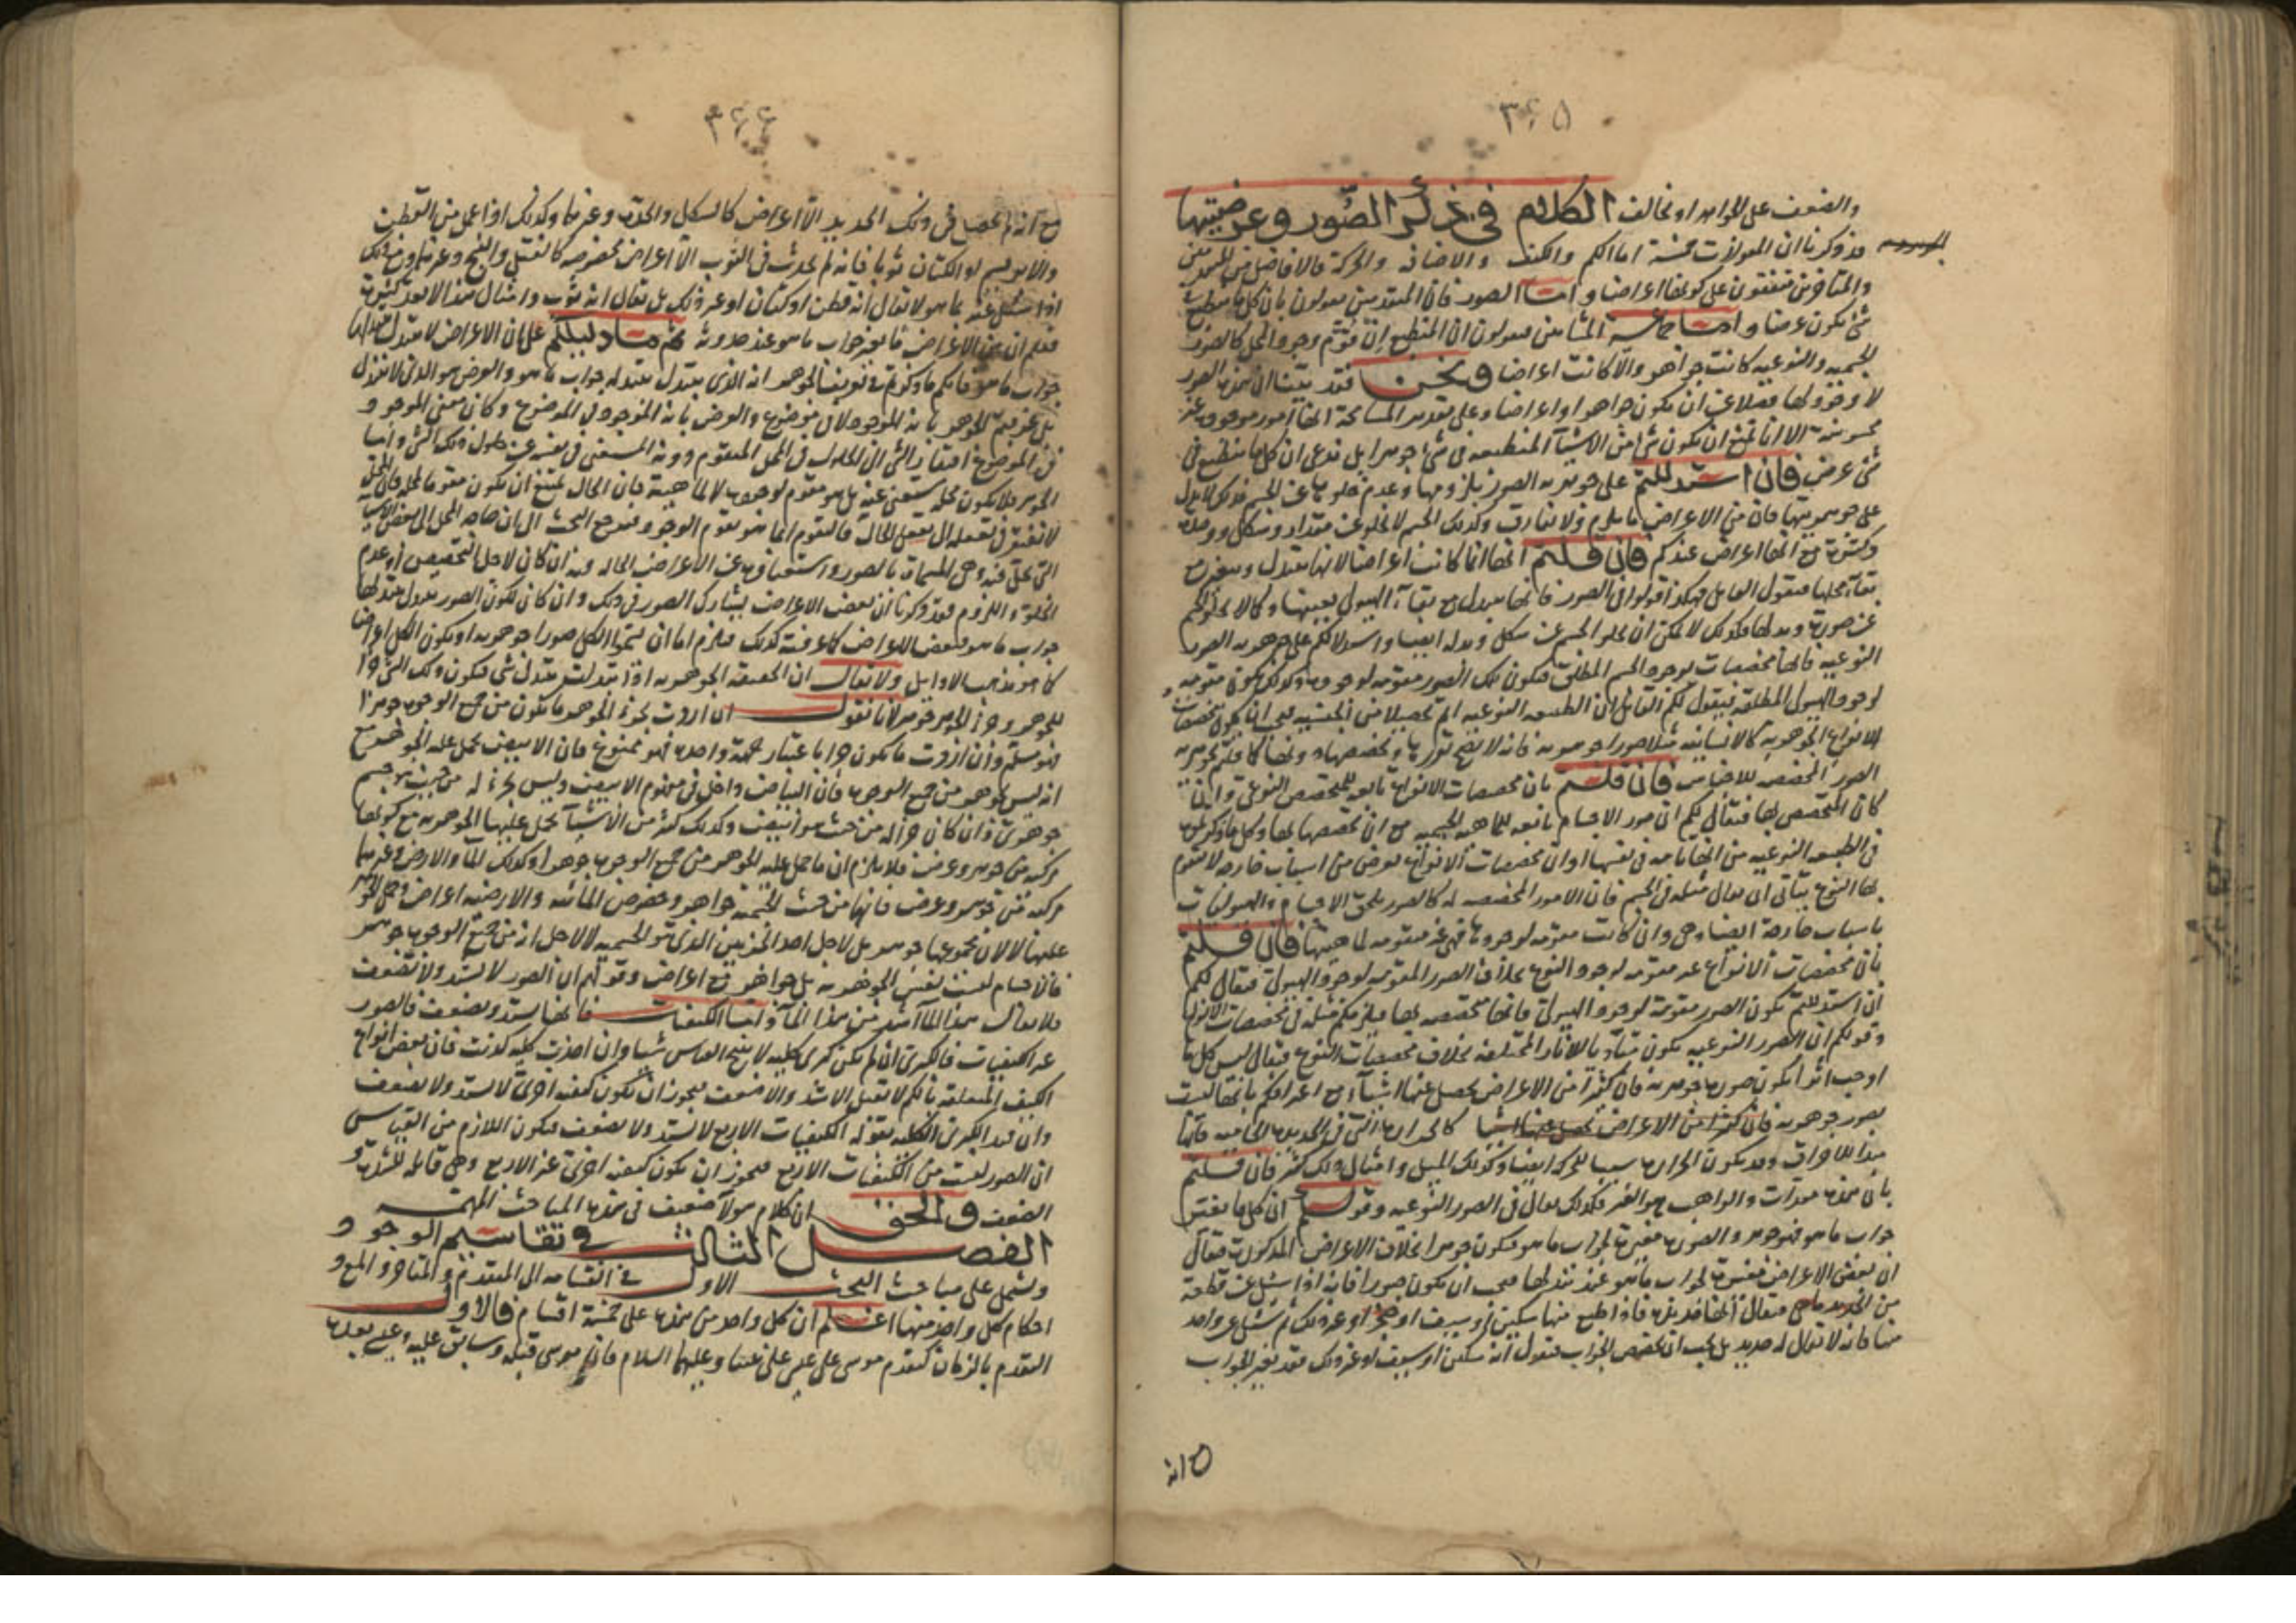 ٣٤٥
والضعف على الجواهر او تخالف الكلام في ذكر الصور وعرضيتها
قد ذكرنا ان المقولات خمسة اما الكم والكيف والاضافة والحركة فالافاضل من المتقدمين
والمتأخرين متفقون على كونها اعراضا واما الصور فان المتقدمين يقولون بان كل ما ينطبع في
شئ يكون عرضا واما جماعة المشائين فيقولون ان المنطبع ان قوّم وجود المحل كالصور
الجسمية والنوعية كانت جواهر والا كانت اعراضا ونحن قد بيّنا ان هذه الصور
لا وجود لها فضلا عن ان يكون جواهر او اعراضا وعلى تقدير المسامحة انها امور موجودة غير
محسوسة الا انا نمنع ان يكون شئ من الاشيآ المنطبعة في شئ جوهرا بل ندعى ان كل ما ينطبع في
شئ عرض فان استدللتم على جوهرية الصور بلزومها وعدم خلو عن الجسم فذلك لا يدل
على جوهريتها فان من الاعراض ما يلزم ولا يفارق وكذلك الجسم لا يخلو عن مقدار وشكل ووحدة
وكثرة مع انها اعراض عندكم فان قلتم انها انما كانت اعراضا لانها تتبدل وتتغير مع
بقآء محلها فيقول القايل فهكذا قولوا في الصور فانها تتبدل مع بقآء الهيولى بعينها وكما لا
عن صورة وبدلها فكذلك لا يمكن ان يخلو الجسم عن شكل وبدله ايضا واستدلالكم على جوهرية الصور
النوعية فانها مخصصات لوجود الجسم المطلق فيكون تلك الصور مقومة لوجوده
لوجود الهيولى المطلقة فيقول لكم القايل ان الطبيعة النوعية اتم تحصيلا من الجنسية فيجب ان يكون مخصصات
الانواع الجوهرية كالانسانية مثلا صورا جوهرية فانه لا يصح تقررها دون مخصصها كما قلتم
الصور المخصصة للاجناس فان قلتم بان مخصصات الانواع تابعة للمخصص النوعى
كان المتخصص بها فيقال لكم ان صور الاجسام تابعة للماهية الجسمية مع ان تخصصها بها وكل ما ذكرتموه
في الطبيعة النوعية من انها تامة في نفسها او ان مخصصات الانواع تعرض من اسباب خارجة لا يتقوم
بها النوع يتأتى ان يقال مثله في الجسم فان الامور المخصصة له كالصور يلحق الاجسام والهيوليات
باسباب خارجة ايضا وهى وان كانت مقومة لوجودها فهى غير مقومة لماهيتها فان قلتم
بان مخصصات الانواع غير مقومة لوجود النوع بخلاف الصور المقومة لوجود الهيولى فيقال لكم
ان استدللتم بكون الصور مقومة لوجود الهيولى فانها مخصصة لها فيلزمكم مثله في مخصصات الانواع
وقولكم ان الصور النوعية يكون مبادى للآثار المختلفة بخلاف مخصصات النوع فيقال ليس كل ما
اوجب اثرا يكون صورة جوهرية فان كثيرا من الاعراض يحصل عنها اشيآء مع اعترافكم بانها ليست
بصور جوهرية فان كثيرا من الاعراض يحصل عنها اشيا كالحرارة التي في الحديدة الحامية فانها
مبدأ للاحراق وقد يكون الحرارة سببا للحركة ايضا وكذلك الميل وامثال ذلك كثير فان قلتم
بان هذه معدّات والواهب هو الغير فكذلك يقال في الصور النوعية وقولكم ان كل ما يغير
جواب ما هو فهو جوهر والصورة مغيرة لجواب ما هو فيكون جوهرا بخلاف الاعراض المذكورة فيقال
ان بعض الاعراض مغيرة لجواب ما هو عند تبدلها فيجب ان يكون صورا فانه اذا سئل عن قطعة
من الحديد ما هى فيقال انها حديد فاذا طبع منها سكين او سيف او غير ذلك ثم سئل عن واحد
منها فانه لا يقال له حديد بل يجب ان يخصص الجواب فيقول انه سكين او سيف او غير ذلك فقد تغير الجواب
٣٤٤
مع انه لم يحصل في ذلك الحديد الا اعراض كالشكل والحدة وغيرها وكذلك اذا عمل من القطن
والابريسم او الكتان ثوبا فانه لم يحدث في الثوب الا اعراض مخصوصة كالفتل والنسج وغيرهما ومع ذلك
اذا سئل عنه بما هو لا يقال انه قطن او كتان او غير ذلك بل يقال انه ثوب وامثال هذا لا يعد كثرة
فعلم ان من الاعراض ما يغير جواب ما هو عند حدوثه ثم ما دليلكم على ان الاعراض لا تتبدل بتبدلها
جواب ما هو فانكم ما ذكرتم في تعريف الجوهر انه الذى يتبدل بتبدله جواب ما هو والعرض هو الذى لا
بل عرفتم الجوهر بانه الموجود لا في موضوع والعرض بانه الموجود في الموضوع وكان معنى الموجود
في الموضوع افتقار الشئ الى الحلول في المحل المتقوم دونه المستغنى في نفسه عن حلول ذلك الشئ واما
الجوهر فلا يكون محله مستغنى عنه بل هو مقوم لوجوده لا لماهيته فان الحال يمتنع ان يكون مقوما لمحله فان المحل
لا يفتقر في تعقله الى تعقل الحال فالمقوم انما هو مقوم الوجود فيرجع البحث الى ان حاجة المحل الى بعض الاشيآ
التى تحل فيه وهى المسماة بالصور واستغناؤه عن الاعراض الحالة فيه ان كان لاجل التخصيص او عدم
الخلو واللزوم فقد ذكرنا ان بعض الاعراض يشارك الصور في ذلك وان كان لكون الصور يتبدل بتبدلها
جواب ما هو فبعض الاعراض كما عرفته كذلك فيلزم اما ان تسمّوا الكل صورا جوهرية او يكون الكل اعراضا
كما هو مذهب الاوايل ولا يقال ان الحقيقة الجوهرية اذا تبدلت بتبدل شئ فيكون ذلك الشئ جزءا
للجوهر وجزء الجوهر جوهر لانا نقول ان اردت بجزء الجوهر ما يكون من جميع الوجوه جوهرا
فهو مسلّم وان اردت ما يكون جزءا باعتبار جهة واحدة فهو ممنوع فان الابيض يحمل عليه الجوهر مع
انه ليس بجوهر من جميع الوجوه فان البياض داخل في مفهوم الابيض وليس بجزء له من حيث هو جسم
جوهرى وان كان جزءا له من حيث هو ابيض وكذلك كثير من الاشيآ تحمل عليها الجوهرية مع كونها
مركبة من جوهر وعرض فلا يلزم ان ما حمل عليه الجوهر من جميع الوجوه جوهرا وكذلك المآ والارض وغيرهما
مركبة من جوهر وعرض فانها من حيث الجسمية جواهر وخصوص المائية والارضية اعراض وحمل الجوهر
عليها لا لان مجموعها جوهر بل لاجل احد الجزئين الذى هو الجسمية لا لاجل انه من جميع الوجوه جوهر
فالاجسام ليست نفس الجوهرية بل جواهر مع اعراض وقولهم ان الصور لا تشتد ولا تضعف
فلا يقال هذا المآ اشد من هذا المآ واما الكيفيات فانها تشتد وتضعف فالصور
غير الكيفيات فالكبرى ان لم تكن كبرى كلية لا ينتج القياس شيا وان اخذت كلية كذبت فان بعض انواع
الكيف المتعلقة بالكم لا تقبل الاشد والاضعف فيجوز ان يكون كيفية اخرى لا تشتد ولا تضعف
وان قيد الكبرى الكلية بقوله الكيفيات الاربع لا تشتد ولا تضعف فيكون اللازم من القياس
ان الصور ليست من الكيفيات الاربع فيجوز ان يكون كيفية اخرى غير الاربع وهى قابلة للشدة و
الضعف والحق ان كلام هولآء ضعيف في هذه المباحث المهمّة
الفصل الثالث في تقاسيم الوجود
ويشتمل على مباحث البحث الاول في انقسامه الى المتقدم والمتأخر والمع و
احكام كل واحد منها اعلم ان كل واحد من هذه على خمسة اقسام فالاول
التقدم بالزمان كتقدم موسى على عيسى على نبينا وعليهما السلام فان موسى قبله وسابق عليه وعيسى بعده